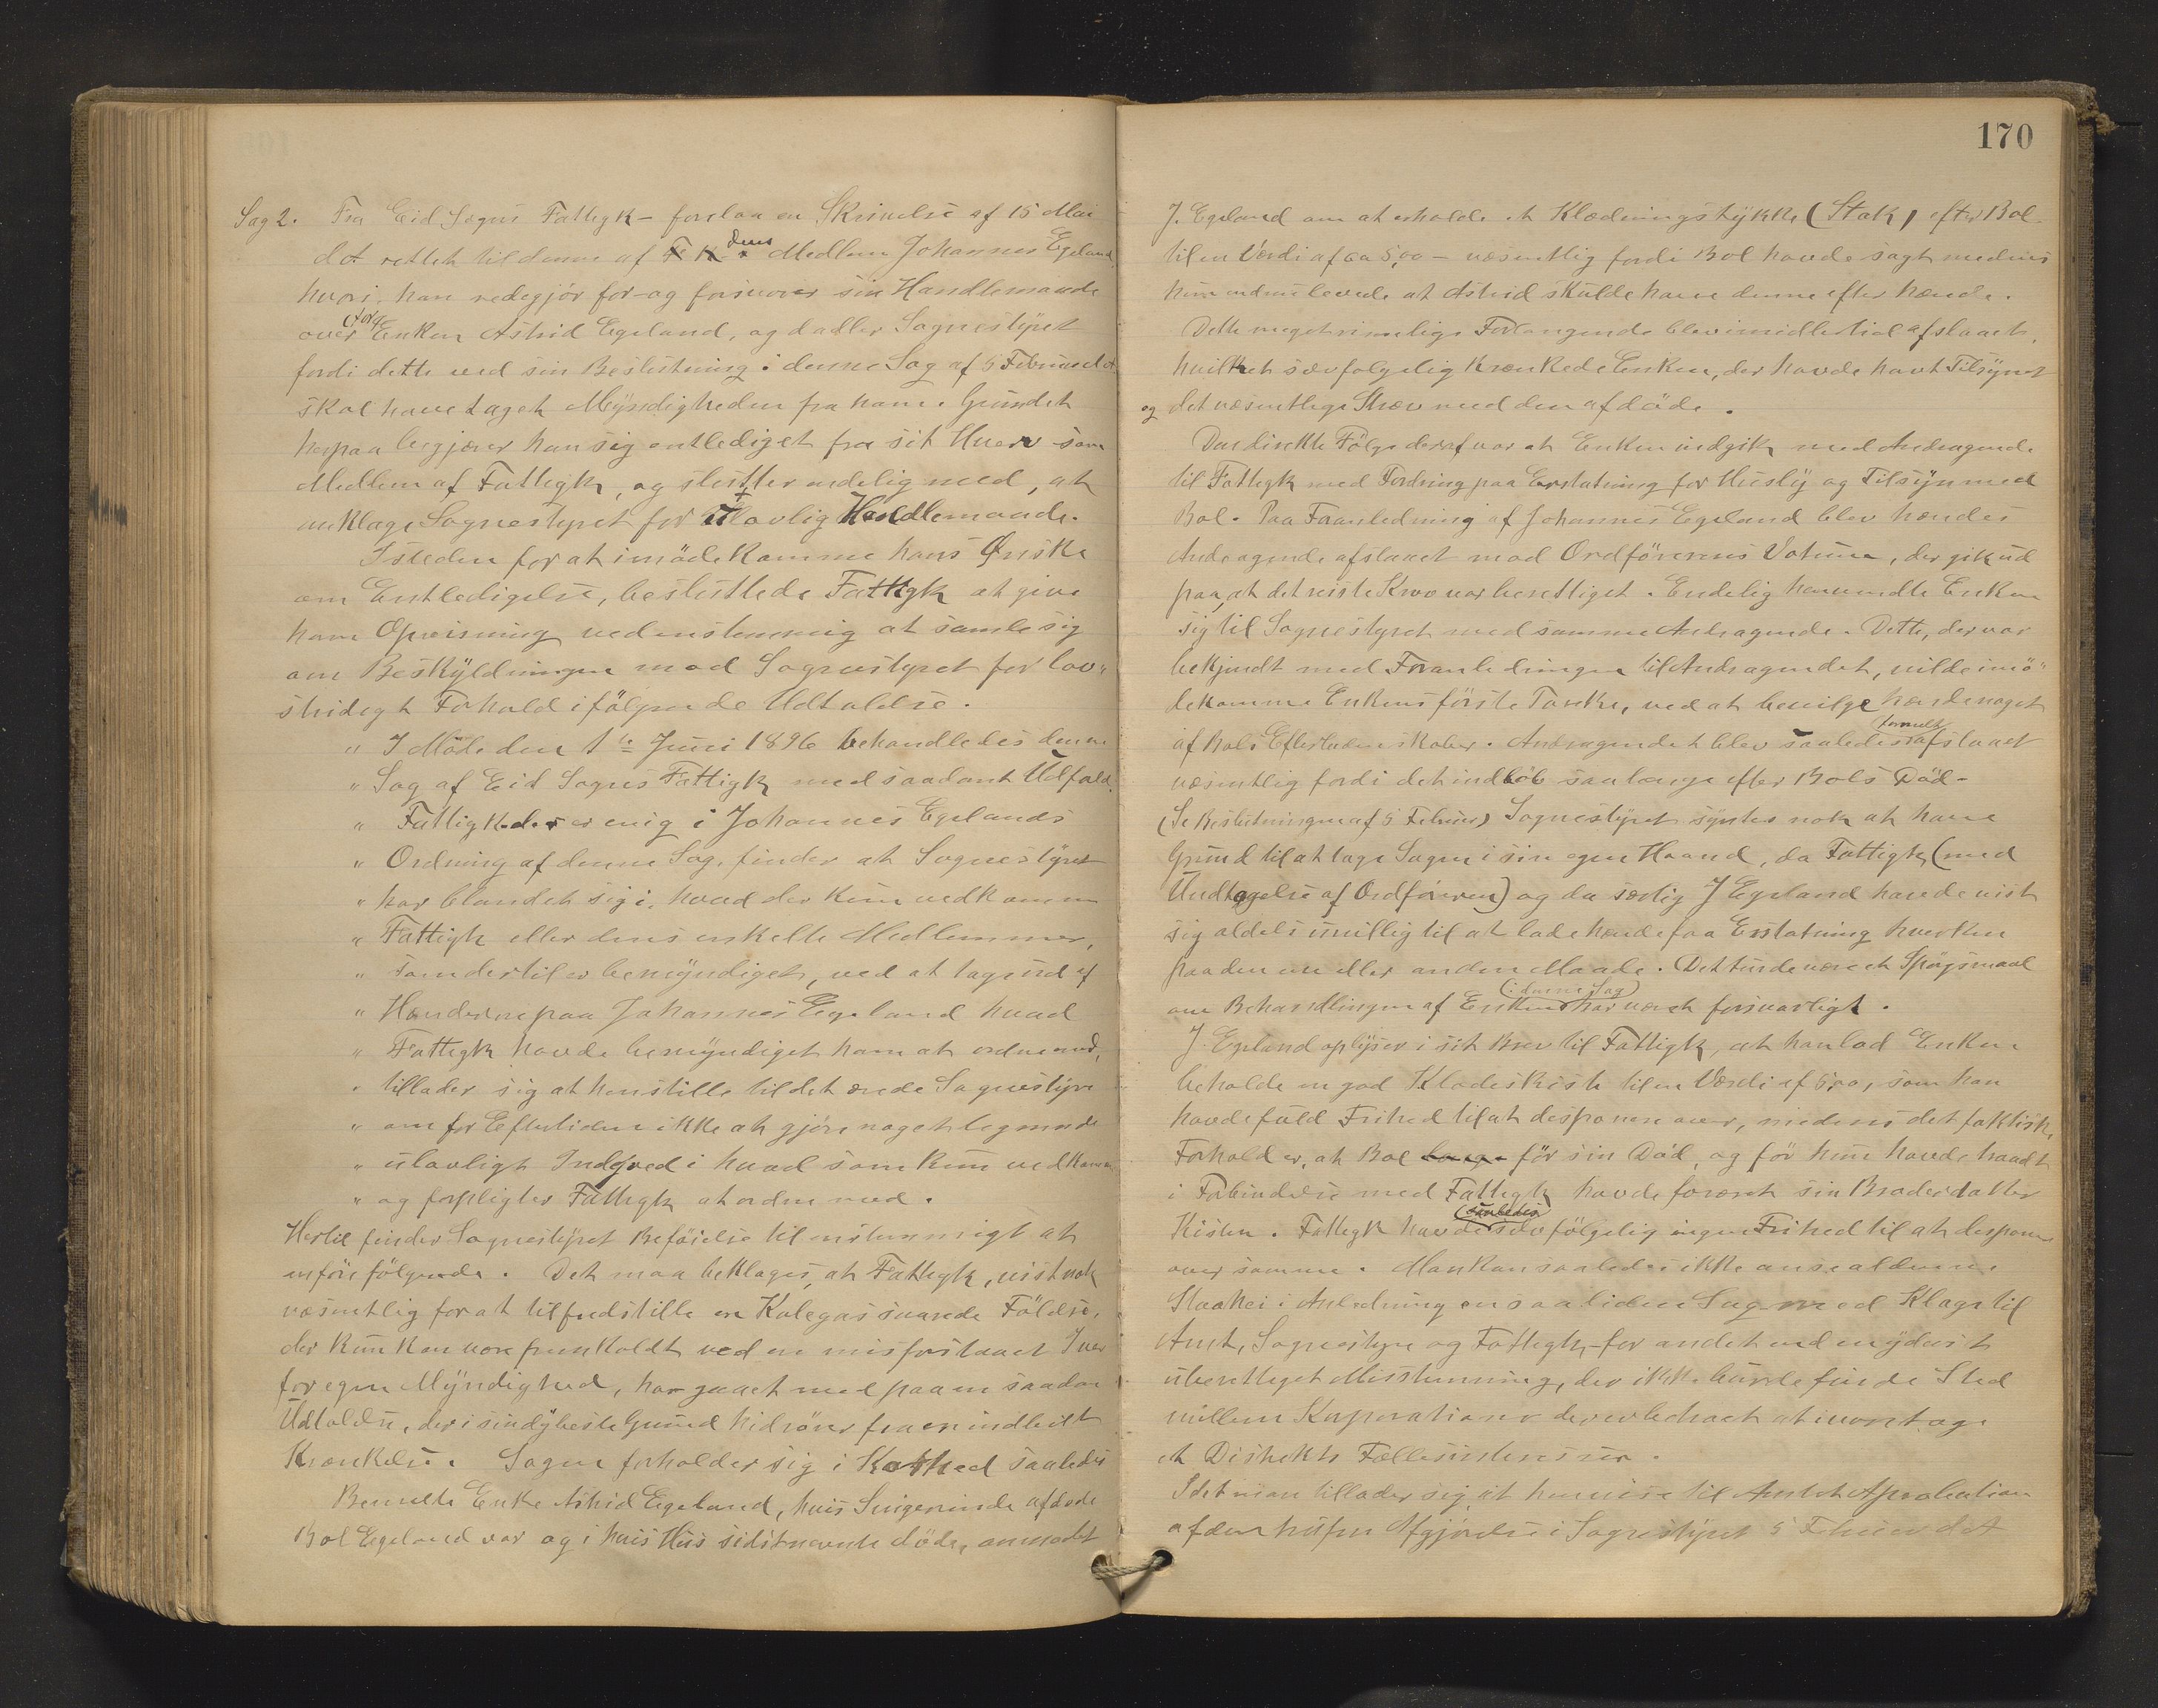 170
Sag 2. Fra Eid Sogns Fattigk - forelaa en Skrivelse af 15 Mai
d A rettet til denne af dens Medlem Johannes Egeland
hvori han redegjör for og forsvarer sin Handlemaade
over for Enken Astrid Egeland, og dadler Sognestyret
fordi dette ved sin Beslutning i denne Sag af 5 Februar d A
skal have taget Myndigheden fra ham. Grundet
herpaa begjærer han sig entlediget fra sit Hverv som
Medlem af Fattigk, og slutter endelig med, at
anklage Sognestyret for ulovlig Handlemaade.
Isteden for at imödekomme hans Ønske
om Entledigelse, besluttede Fattigk at give
ham Opreisning ved enstemmig at samle sig
om Beskyldningen mod Sognestyret for lov"
stridigt Forhold i fölgende Udtalelse.
" I Möde den 1ste Juni 1896 behandledes denne
" Sag af Eid Sogns Fattigk med saadant Udfald.
" Fattigk. der er enig i Johannes Egelands
" Ordning af denne Sag, finder at Sognestyret
" har blandet sig i, hvad der kun vedkommer
" Fattigk eller dens enkelte Medlemmer,
" som dertil er bemyndiget, ved at tage ud af
" Hænderne paa Johannes Egeland hvad
" Fattigk havde bemyndiget ham at ordne med,
" tillader sig at henstille til det ærede Sognestyre
" om for Eftertiden ikke at gjöre noget lignende
" ulovligt Indgreb i hvad som kun vedkommer
" og forpligter Fattigk at ordne med.
Hertil finder Sognestyret Beföielse til enstemmigt at
anföre fölgende. Det maa beklages, at Fattigk, vistnok
væsentlig for at tilfredstille en Kolegas saarede Fölelse,
der kun kan være fremkaldt ved en misforstaaet Iver
for egen Myndighed, har gaaet med paa en saadan
Udtalelse, der i sin dybeste Grund hidrörer fra en indbildt
Krænkelse. Sagen forholder sig i Korthed saaledes
Bemeldte Enke Astrid Egeland, hvis Svigerinde afdöde
Bol Egeland var og i hvis Hus sidstnævnte döde, anmodet
J. Egeland om at erholde et Klædningstykke (Stak) efter Bol
til en Værdi af ca 5,00 - væsentlig fordi Bol havde sagt medens
hun endnu levede at Astrid skulde have denne efter hende.
Dette meget rimelige Forlangende blev imidlertid afslaaet,
hvilket selvfølgelig krænkede Enken, der havde havt Tilsynet
og det væsentlige Stræv med den afdöde.
Den direkte Fölge deraf var at Enken indgik med Andragende
til Fattigk med Fordring paa Erstatning for Husly og Tilsyn med
Bol. Paa Foranledning af Johannes Egeland blev hendes
Andragende afslaaet mod Ordförerens Votum, der gik ud
paa, at det reiste Krav var berettiget. Endelig henvendte Enken
sig til Sognestyret med samme Andragende. Dette, der var
bekjendt med Foranledningen til Andragendet, vilde imö"
dekomme Enkens förste Tanke, ved at bevilge hende noget
af Bols Efterladenskaber. Andragendet blev saaledes formelt afslaaet
væsentlig fordi det indlöb saa længe efter Bols Död -
(Se Beslutningen af 5 Februar) Sognestyret syntes nok at have
Grund til at tage Sagen i sin egen Haand, da Fattigk (med
Undtagelse af Ordföreren) og da særlig J Egeland havde vist
sig aldeles uvillig til at lade hende faa Erstatning hverken
paa den ene eller anden Maade. Det turde være et Spögsmaal
om Behandlingen af Enken (i denne Sag) har været forsvarligt.
J. Egeland oplyser i sit Brev til Fattigk, at han lod Enken
beholde en god Klædeskiste til en Værdi af 5,00, som han
havde fuld Frihed til at desponere over, medens det faktiske
Forhold er, at Bol længe för sin Död, og för hun havde havdt
i Forbindelse med Fattigk havde foræret sin Broderdatter
Kisten. Fattigk havde saaledes selvfölgelig ingen Frihed til at desponere
over samme. Man kan saaledes ikke anse al denne
Staahei i Anledning en saa liden Sag med Klage til
Amt, Sognestyre og Fattigk - for andet end en yderst
uberettiget Misstemning, der ikke burde finde Sted
mellem Korporationer der er betroet at ivaretage
et Distrikts Fællesinteresser.
Idet man tillader sig at henvise til Amtets Aprobation
af den trufne Afgjörelse i Sognestyret 5 Februar d A